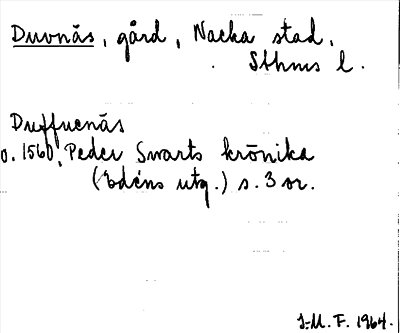 Duvnäs, gård, Nacka stad,
Sthms l.
Duffuenäs
o. 1560, Peder Swarts krönika
(Edéns utg.) s. 3 or.
J-M. F. 1964.